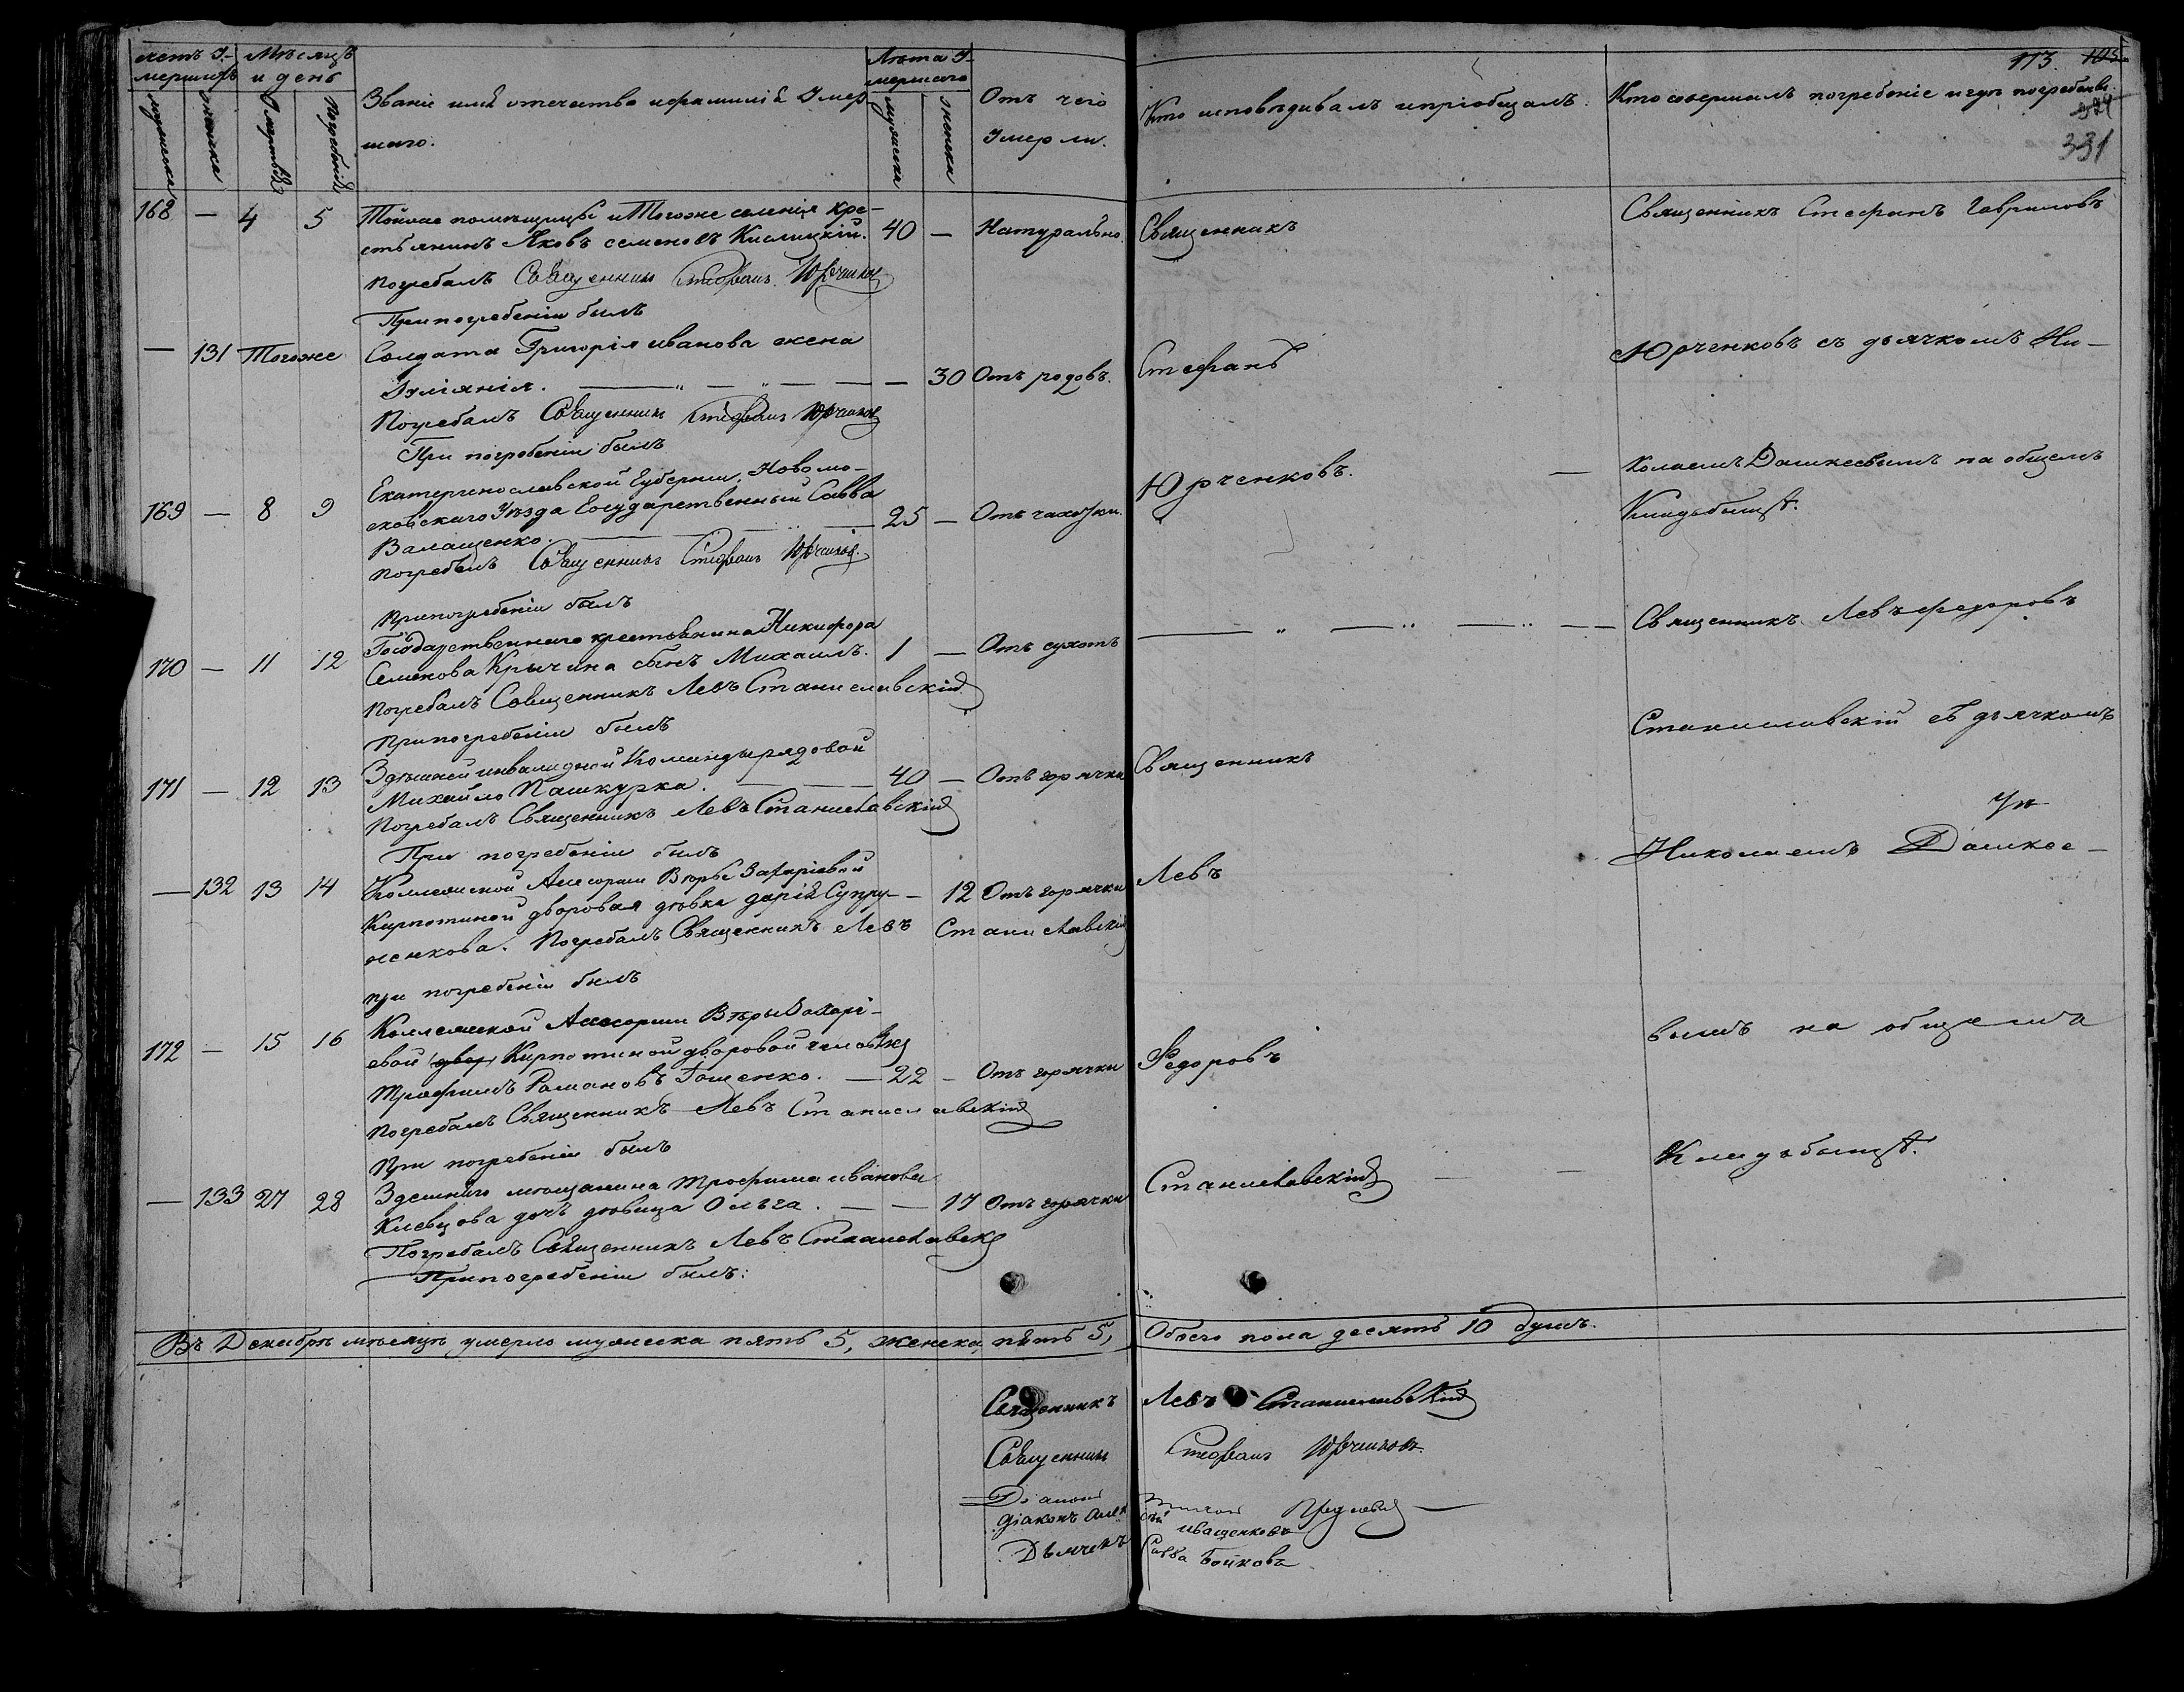 счетъ У-
мершихъ
Мѣсяцъ
и день
Званіе имя отечество и фамилія Умер-
шаго.
Лѣта У-
мершаго
Отъ чего
Умерли.
мужеска
женска
Смерти
Погребенія
мужеска
женска
Кто исповѣдывалъ и пріобщалъ.
Кто совершалъ погребеніе и гдѣ погребены.
113. 105
331
168 — 4 5 Тойже помѣщицы и Тогоже селенія кре-
стьянинъ Яковъ семеновъ Кислицкій. 40 — Натурально.
Погребалъ Священникъ Стефанъ Юрченковъ
При погребеніи былъ
— 131 Тогоже Солдата Григорія иванова жена
Іуліянія. — — 30 Отъ родовъ.
Погребалъ Священникъ Стефанъ Юрченковъ
При погребеніи былъ
169 — 8 9 Екатеринославской Губерніи, Новомо-
сковскаго Уѣзда Государственный Савва
Валащенко. — 25 — Отъ чахотки.
Погребалъ Священникъ Стефанъ Юрченковъ.
При погребеніи былъ
170 — 11 12 Государственнаго крестьянина Никифора
Семенова Крычина сынъ Михаилъ. 1 — Отъ сухотъ
Погребалъ Священникъ Левъ Станиславскій
При погребеніи былъ
171 — 12 13 Здѣшней инвалидной Команды рядовой
Михайло Пашкурка. — 40 — Отъ горячки
Погребалъ Священникъ Левъ Станиславскій
При погребеніи былъ
— 132 13 14 Коллежской Ассесорши Вѣры Захаріевой
Кирпотиной дворовая дѣвка дарія Супру- — 12 Отъ горячки
женкова. Погребалъ Священникъ Левъ Станиславскій
при погребеніи былъ
172 — 15 16 Коллежской Ассесорши Вѣры Захарі-
евой двор, Кирпотиной дворовой человѣкъ
Трофимъ Романовъ Гошенко. — 22 — Отъ горячки
Погребалъ Священникъ Левъ Станиславскій
При погребеніи былъ
— 133 27 28 Здешняго мѣщанина Трофима иванова
Киевцова дочь дѣвица Ольга. — — 17 Отъ горячки
Погребалъ Священникъ Левъ Станиславск
При погребеніи былъ:
Священникъ
Стефанъ
Юрченковъ. —
Священникъ
Левъ
Федоровъ
Станиславскій —
Священникъ Стефанъ Гавриловъ
Юрченковъ съ дьячкомъ Ни-
колаемъ Дашкеевымъ на общемъ
Кладбищѣ.
Священникъ Левъ федоровъ
Станиславскій съ дьячкомъ
Николаемъ Дашкее-
вымъ на общемъ
Кладбищѣ.
Въ Декабрѣ мѣсяцѣ умерло мужеска пять 5, женска пять 5, Обоего пола десять 10 душъ.
Священникъ Левъ Станиславскій
Священникъ Стефанъ Юрченковъ.
Діаконъ
діаконъ Алексѣй иващенковъ
Дьячекъ Савва Бойковъ